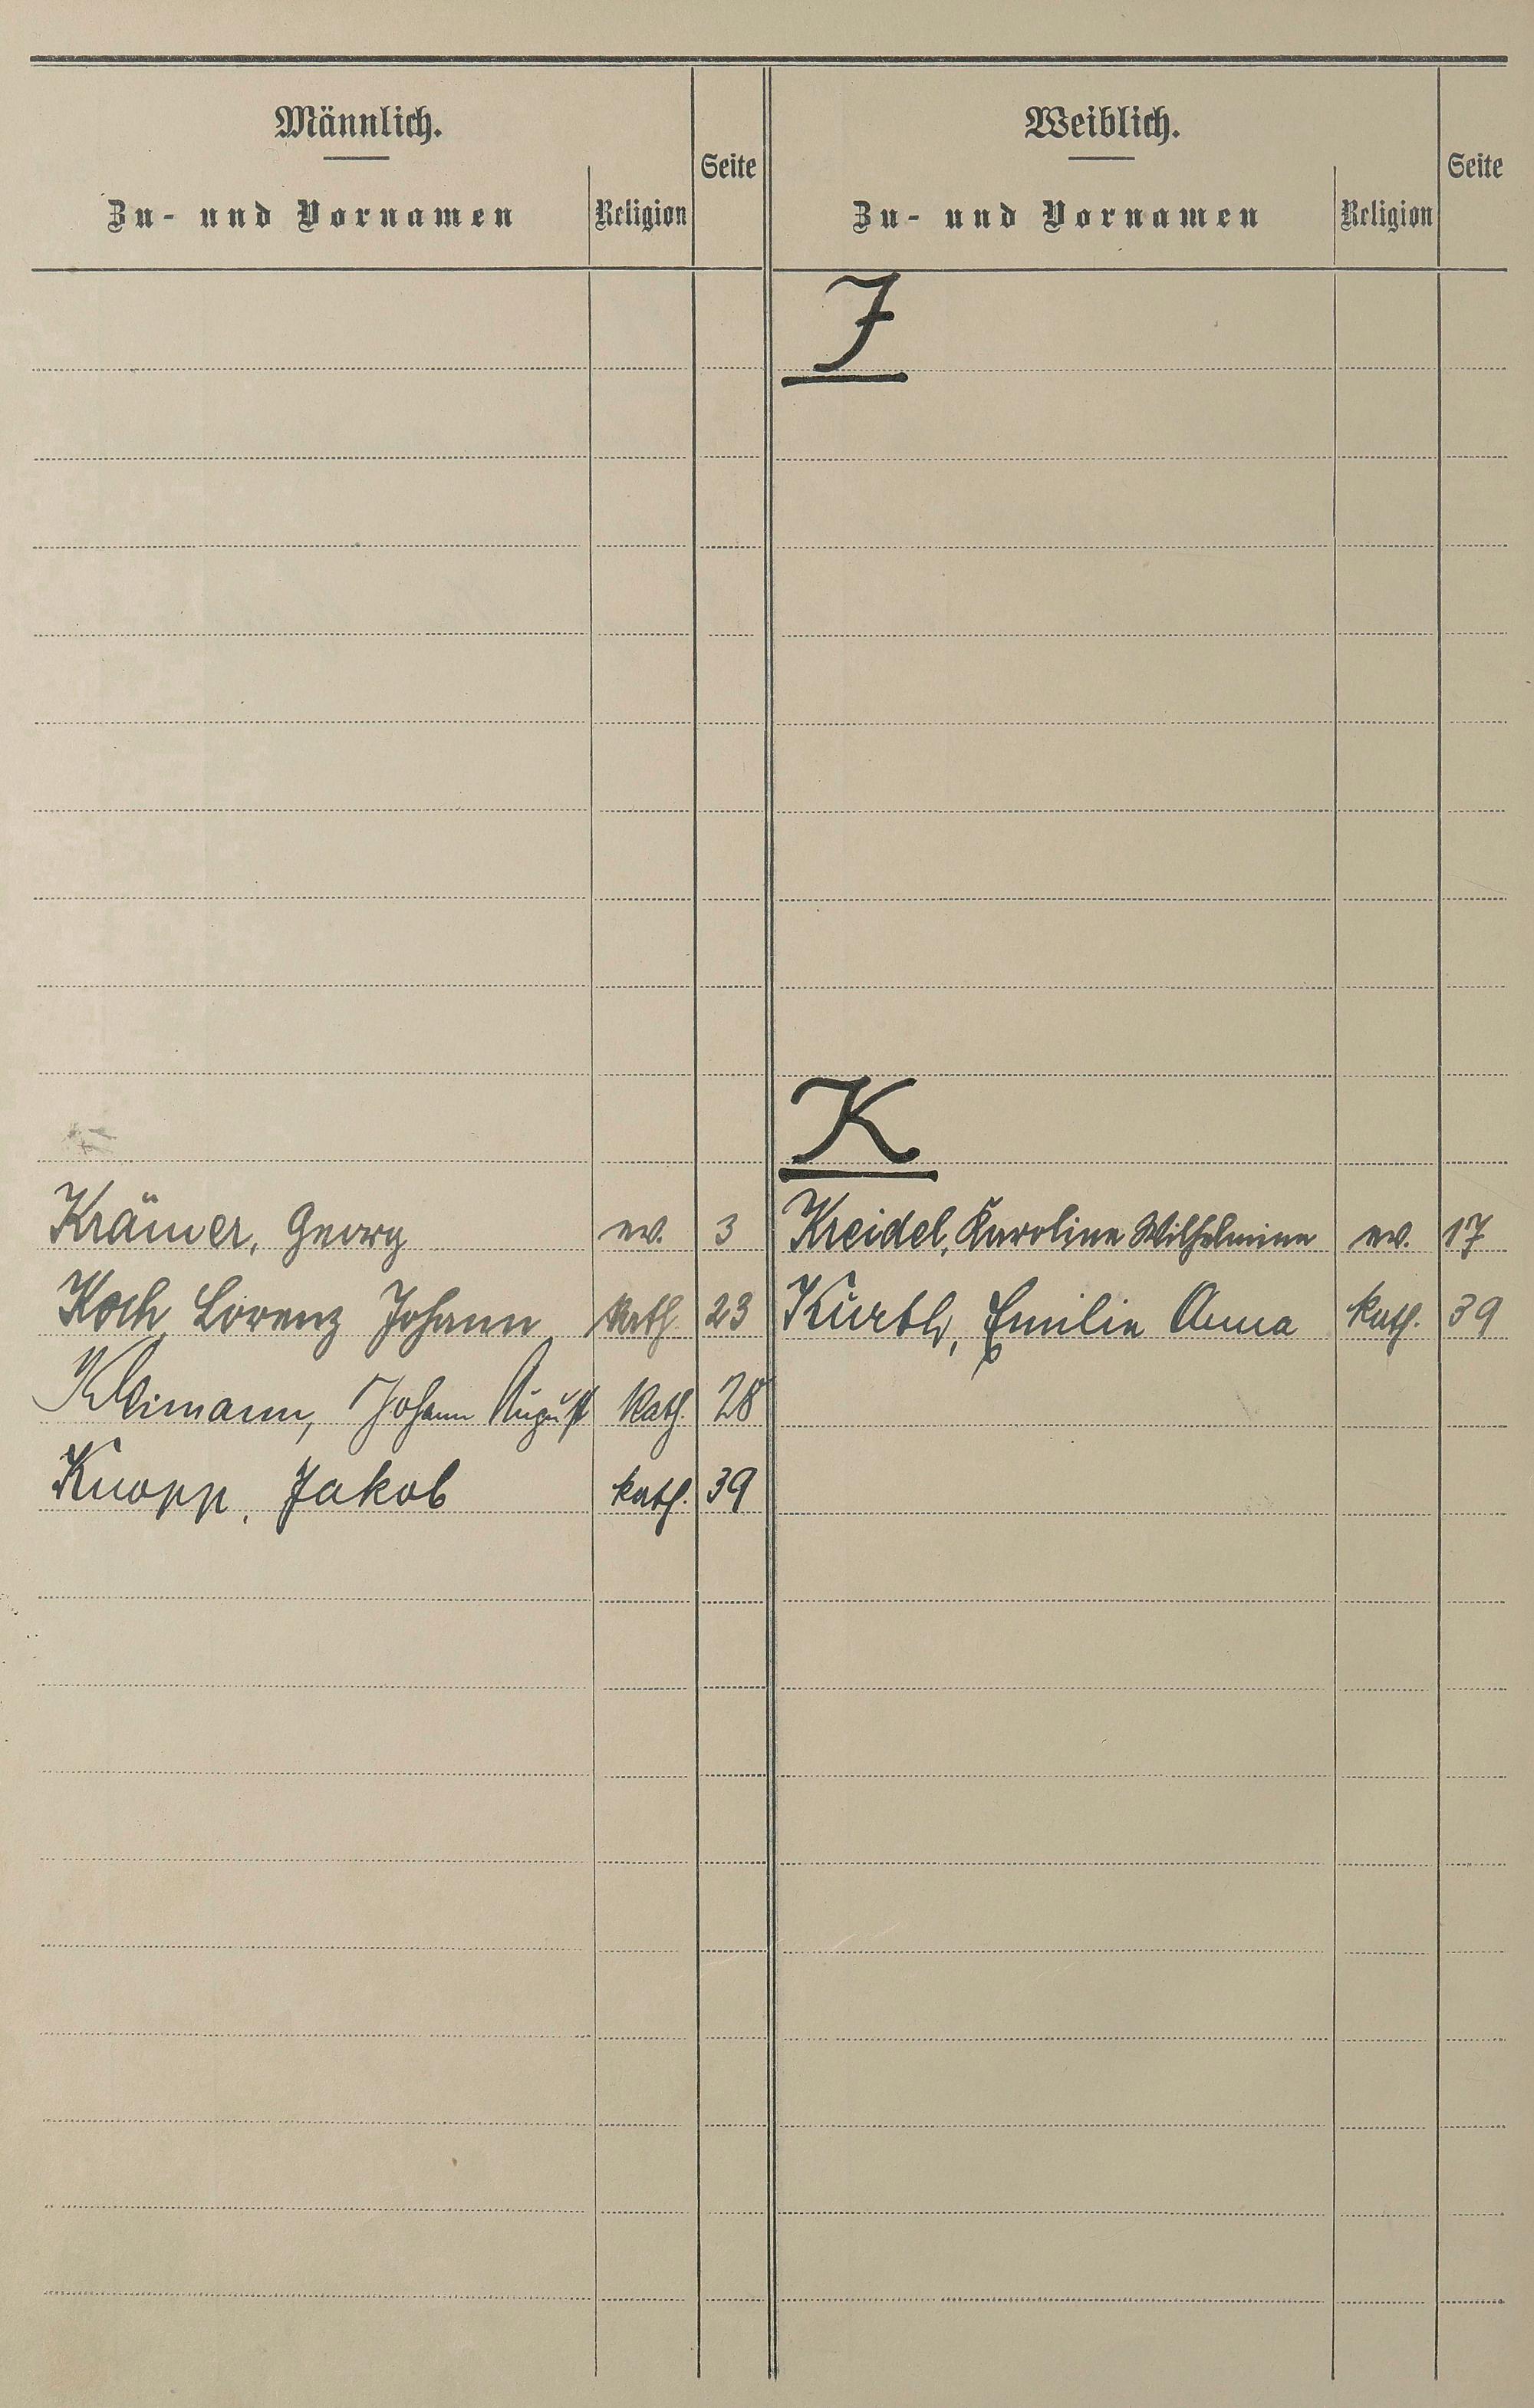 Männlich.
Zu- und Vornamen Religion Seite
Weiblich.
Zu- und Vornamen Religion Seite
J
K
Krämer, Georg ev. 3 Kreidel, Karoline Wilhelmine ev. 17
Koch Lorenz Johann kath. 23 Kürth, Emilie Anna kath. 39
Johann August kath. 28
Knopp, Jakob kath. 39